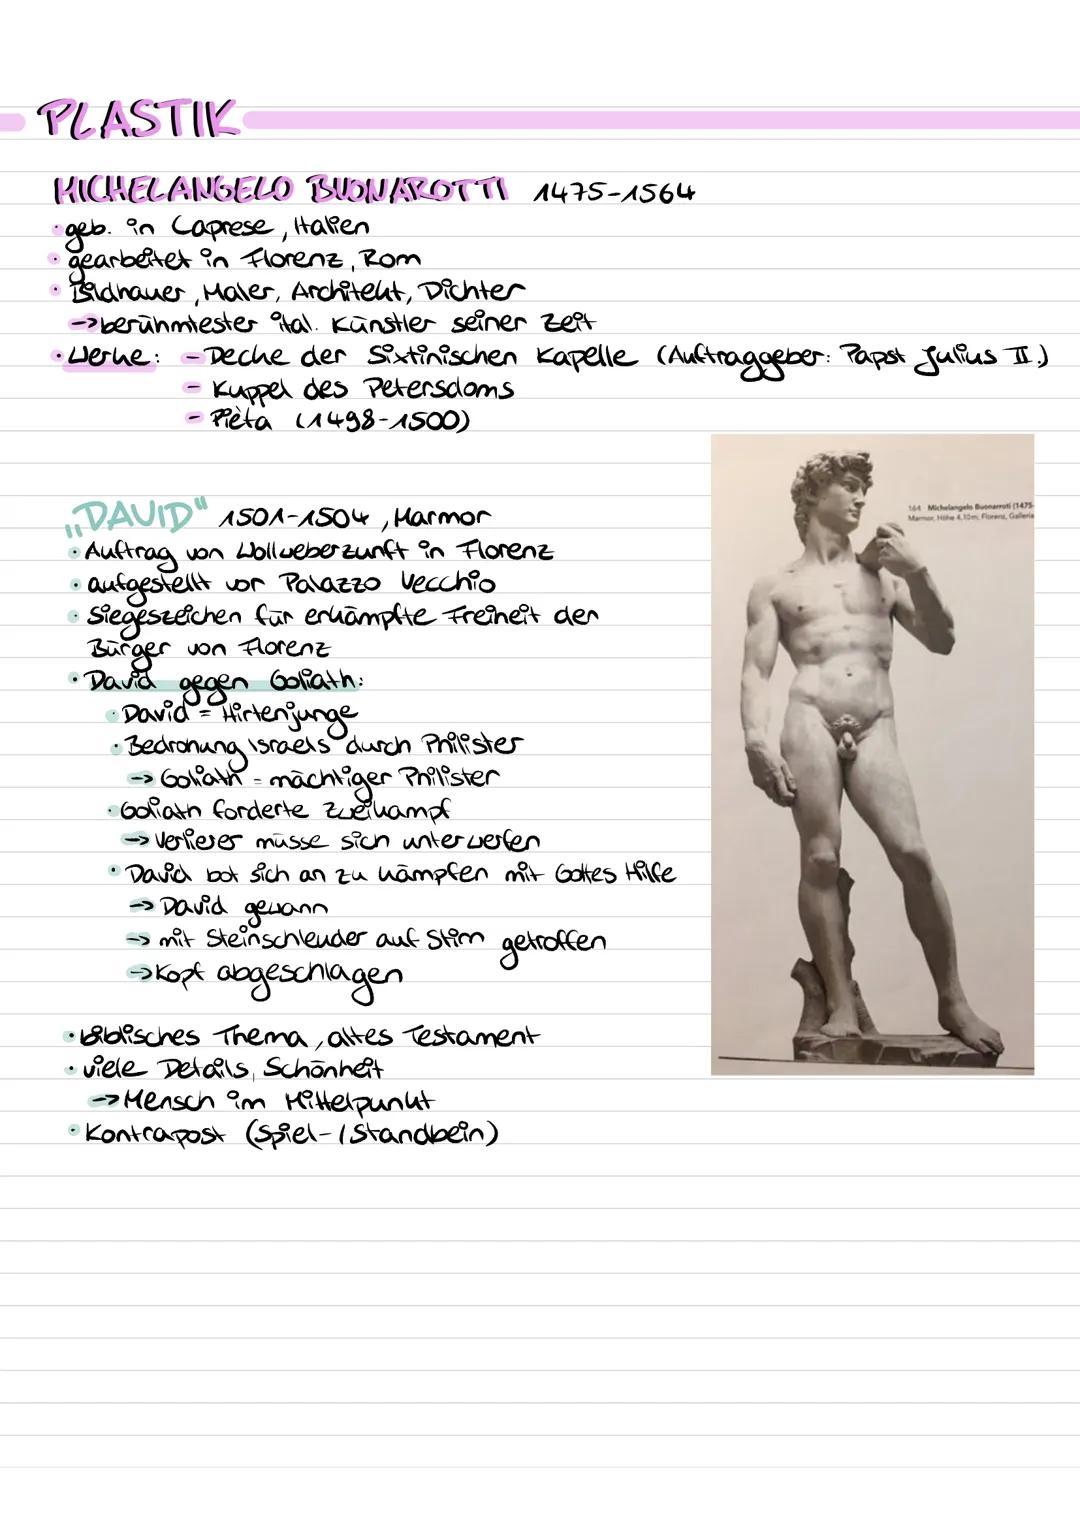 PLASTIK
MICHELANGELO BUONAROTTI 1475-1564
· geb. in Caprese, Italien
· gearbeitet in Florenz, Rom
· Bildhauer, Maler, Architekt, Dichter
-> berühmtester ital. Künstler seiner Zeit
· Werke: - Decke der Sixtinischen Kapelle (Auftraggeber: Papst Julius II.)
- Kuppel des Petersdoms
- Pièta (1498-1500)
„DAVID“ 1501-1504, Marmor
· Auftrag von Wollweberzunft in Florenz
· aufgestellt vor Palazzo Vecchio
· Siegeszeichen für erkämpfte Freiheit der
Bürger von Florenz
· David gegen Goliath:
· David = Hirtenjunge
· Bedrohung Israels durch Philister
-> Goliath = mächtiger Philister
· Goliath forderte Zweikampf
-> Verlierer müsse sich unterwerfen
· David bot sich an zu kämpfen mit Gottes Hilfe
-> David gewann
-> mit Steinschleuder auf Stirn getroffen
-> Kopf abgeschlagen
· biblisches Thema, altes Testament
· viele Details, Schönheit
-> Mensch im Mittelpunkt
· Kontrapost (Spiel-/Standbein)
164 Michelangelo Buonarroti (1475-
Marmor, Höhe 4,10m, Florenz, Galleria